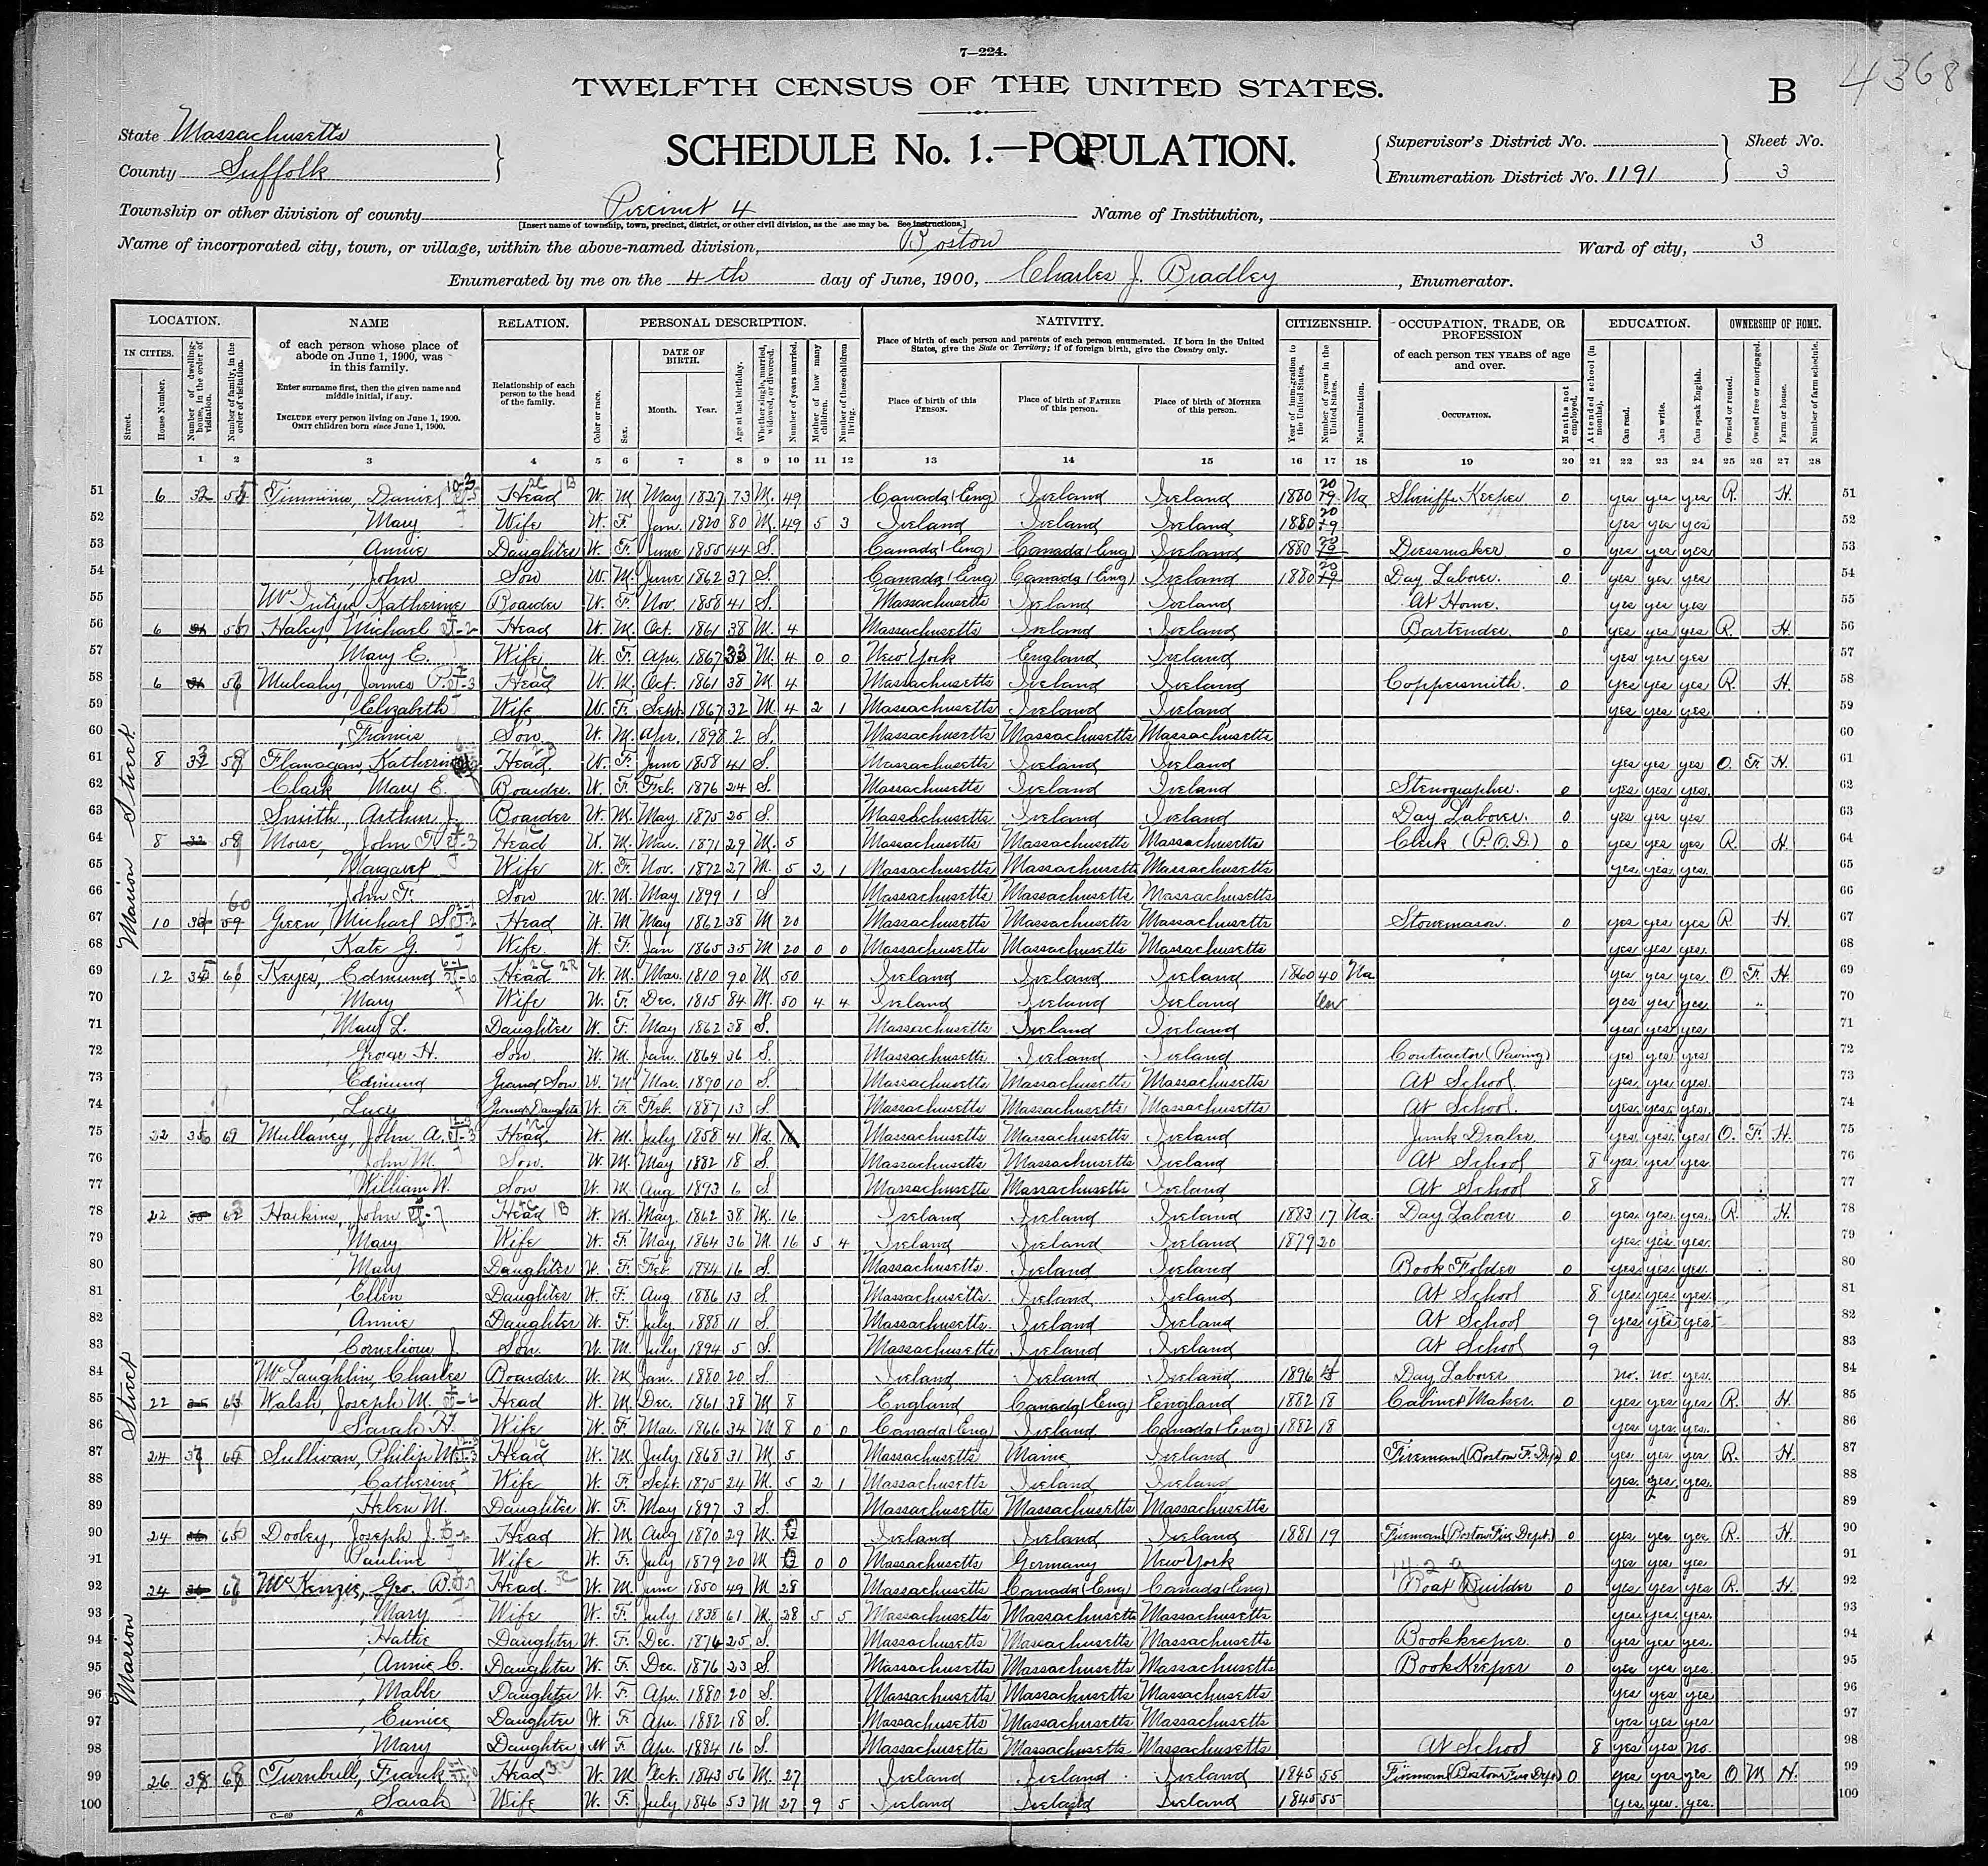 7—224.
TWELFTH CENSUS OF THE UNITED STATES.
B
4368
State Massachusetts
County Suffolk
SCHEDULE No. 1.—POPULATION.
Supervisor's District No.
Enumeration District No. 1191
Sheet No.
3
Township or other division of county Precinct 4 Name of Institution,
[Insert name of township, town, precinct, district, or other civil division, as the case may be. See instructions.]
Name of incorporated city, town, or village, within the above-named division, Boston Ward of city, 3
Enumerated by me on the 4th day of June, 1900, Charles J. Bradley, Enumerator.
LOCATION. NAME RELATION. PERSONAL DESCRIPTION. NATIVITY. CITIZENSHIP. OCCUPATION, TRADE, OR PROFESSION EDUCATION. OWNERSHIP OF HOME.
IN CITIES.
Street.
House Number.
Number of dwelling-house, in the order of visitation.
Number of family, in the order of visitation.
of each person whose place of abode on June 1, 1900, was in this family.
Enter surname first, then the given name and middle initial, if any.
INCLUDE every person living on June 1, 1900.
OMIT children born since June 1, 1900.
Relationship of each person to the head of the family.
Color or race.
Sex.
DATE OF BIRTH.
Month. Year.
Age at last birthday.
Whether single, married, widowed, or divorced.
Number of years married.
Mother of how many children.
Number of these children living.
Place of birth of each person and parents of each person enumerated. If born in the United States, give the State or Territory; if of foreign birth, give the Country only.
Place of birth of this PERSON.
Place of birth of FATHER of this person.
Place of birth of MOTHER of this person.
Year of immigration to the United States.
Number of years in the United States.
Naturalization.
of each person TEN YEARS of age and over.
OCCUPATION.
Months not employed.
Attended school (in months).
Can read.
Can write.
Can speak English.
Owned or rented.
Owned free or mortgaged.
Farm or house.
Number of farm schedule.
1 2 3 4 5 6 7 8 9 10 11 12 13 14 15 16 17 18 19 20 21 22 23 24 25 26 27 28
Marion Street
51 6 Daniel Head W. M. May 1827 73 M. 49 Canada (Eng) Ireland Ireland 1880 20 Na Sheriffs Keeper 0 yes yes yes R. H. 51
52 Mary Wife W. F. Jan. 1820 80 M. 49 5 3 Ireland Ireland Ireland 1880 20 yes yes yes 52
53 Annie Daughter W. F. June 1855 44 S. Canada (Eng) Canada (Eng) Ireland 1880 Dressmaker 0 yes yes yes 53
54 John Son W. M. June 1862 37 S. Canada (Eng) Canada (Eng) Ireland 1880 20 Day Laborer. 0 yes yes yes 54
55 Katherine Boarder W. F. Nov. 1858 41 S. Massachusetts Ireland Ireland At Home. yes yes yes 55
56 6 Haley, Michael Head W. M. Oct. 1861 38 M. 4 Massachusetts Ireland Ireland Bartender. 0 yes yes yes R. H. 56
57 Mary E. Wife W. F. Apr. 1867 33 M. 4 0 0 New York England Ireland yes yes yes 57
58 6 Mulcahy, James P. Head W. M. Oct. 1861 38 M. 4 Massachusetts Ireland Ireland Coppersmith. 0 yes yes yes R. H. 58
59 Elizabeth Wife W. F. Sept. 1867 32 M 4 2 1 Massachusetts Ireland Ireland yes yes yes 59
60 Francis Son W. M. Apr. 1898 2 S. Massachusetts Massachusetts Massachusetts 60
61 8 Flanagan, Katherine Head. W. F. June 1858 41 S. Massachusetts Ireland Ireland yes yes yes O. F. H. 61
62 Clark Mary E. Boarder. W. F. Feb. 1876 24 S. Massachusetts Ireland Ireland Stenographer. 0 yes yes yes. 62
63 Smith, Arthur J. Boarder W. M. May 1875 25 S. Massachusetts Ireland Ireland Day Laborer. 0 yes yes yes 63
64 8 Morse, John F. Head W. M. Mar. 1871 29 M. 5 Massachusetts Massachusetts Massachusetts Clerk (P.O.D.) 0 yes yes yes R. H. 64
65 Margaret Wife W. F. Nov. 1872 27 M. 5 2 1 Massachusetts Massachusetts Massachusetts yes yes yes 65
66 John F. Son W. M. May 1899 1 S Massachusetts Massachusetts Massachusetts 66
67 10 60 Green, Michael S. Head W. M May 1862 38 M 20 Massachusetts Massachusetts Massachusetts Stonemason. 0 yes yes yes R. H. 67
68 Kate G. Wife W. F. Jan 1865 35 M 20 0 0 Massachusetts Massachusetts Massachusetts yes yes yes. 68
69 12 Keyes, Edmund Head W. M. Mar. 1810 90 M 50 Ireland Ireland Ireland 1860 40 Na yes yes yes O F. H. 69
70 Mary Wife W. F. Dec. 1815 84 M. 50 4 4 Ireland Ireland Ireland Un yes yes yes 70
71 Mary L. Daughter W. F. May 1862 38 S. Massachusetts Ireland Ireland yes yes yes 71
72 George H. Son W. M. Jan. 1864 36 S. Massachusetts Ireland Ireland Contractor (Paving) yes yes yes 72
73 Edmund Grand Son W. M Mar. 1890 10 S. Massachusetts Massachusetts Massachusetts At School. yes yes yes. 73
74 Lucy Grand Daughter W. F. Feb. 1887 13 S. Massachusetts Massachusetts Massachusetts At School. yes yes yes. 74
75 22 Mullaney, John A. Head. W. M. July 1858 41 Wd. Massachusetts Massachusetts Ireland Junk Dealer yes yes yes O. F. H. 75
76 John M. Son. W. M. May 1882 18 S. Massachusetts Massachusetts Ireland At School 8 yes yes yes. 76
77 William W. Son W. M Aug 1893 6 S. Massachusetts Massachusetts Ireland At School 8 77
78 22 Harkins, John Head W. M. May 1862 38 M. 16 Ireland Ireland Ireland 1883 17 Na. Day Laborer 0 yes yes yes. R. H. 78
79 Mary Wife W. F. May 1864 36 M. 16 5 4 Ireland Ireland Ireland 1879 20 yes. yes. yes. 79
80 Mary Daughter W. F Feb. 1884 16 S. Massachusetts. Ireland Ireland Book Folder 0 yes. yes. yes. 80
81 Ellen Daughter W. F. Aug 1886 13 S. Massachusetts. Ireland Ireland At School 8 yes. yes. yes. 81
82 Annie Daughter W. F. July 1888 11 S. Massachusetts. Ireland Ireland At School 9 yes yes yes. 82
83 Cornelious J. Son. W. M. July 1894 5 S. Massachusetts Ireland Ireland At School 9 83
84 McLaughlin, Charles Boarder. W. M Jan. 1880 20 S. Ireland Ireland Ireland 1896 Day Laborer no. no. yes. 84
85 22 Walsh, Joseph M. Head W. M. Dec. 1861 38 M 8 England Canada (Eng) England 1882 18 Cabinet Maker. 0 yes yes yes R. H. 85
86 Sarah H. Wife W. F. Mar. 1866 34 M 8 0 0 Canada (Eng) Ireland Canada (Eng) 1882 18 yes yes. yes. 86
87 24 Sullivan, Philip M. Head W. M. July 1868 31 M 5 Massachusetts Maine Ireland Fireman (Boston F. Dep.) 0 yes yes yes R. H. 87
88 Catherine Wife W. F. Sept. 1875 24 M. 5 2 1 Massachusetts Ireland Ireland yes. yes. yes. 88
89 Helen M. Daughter W. F. May 1897 3 S. Massachusetts Massachusetts Massachusetts 89
90 24 Dooley, Joseph J. Head W. M. Aug 1870 29 M. Ireland Ireland Ireland 1881 19 Fireman (Boston Fire Dept.) 0 yes yes yes R. H. 90
91 Pauline Wife W. F. July 1879 20 M 0 0 Massachusetts Germany New York yes yes yes 91
92 24 McKenzie, Geo. Head. W. M. June 1850 49 M 28 Massachusetts Canada (Eng) Canada (Eng) Boat Builder 0 yes yes yes R. H. 92
93 Mary Wife W. F. July 1838 61 M. 28 5 5 Massachusetts Massachusetts Massachusetts yes. yes. yes. 93
94 Hattie Daughter W. F. Dec. 1874 25 S. Massachusetts Massachusetts Massachusetts Bookkeeper. 0 yes yes yes. 94
95 Annie C. Daughter W. F. Dec. 1876 23 S. Massachusetts Massachusetts Massachusetts BookKeeper 0 yes yes yes. 95
96 Mable Daughter W. F. Apr. 1880 20 S. Massachusetts Massachusetts Massachusetts yes yes yes 96
97 Eunice Daughter W. F. Apr. 1882 18 S. Massachusetts Massachusetts Massachusetts yes yes yes 97
98 Mary Daughter W F. Apr. 1884 16 S. Massachusetts Massachusetts Massachusetts At School 8 yes yes no. 98
99 26 Turnbull, Frank Head W. M. Oct. 1843 56 M. 27 Ireland Ireland Ireland 1845 55 Fireman (Boston Fire Dep.) 0 yes yes yes O M H. 99
100 Sarah Wife W. F. July 1846 53 M 27 9 5 Ireland Ireland Ireland 1845 55 yes. yes. yes. 100
Street
Marion